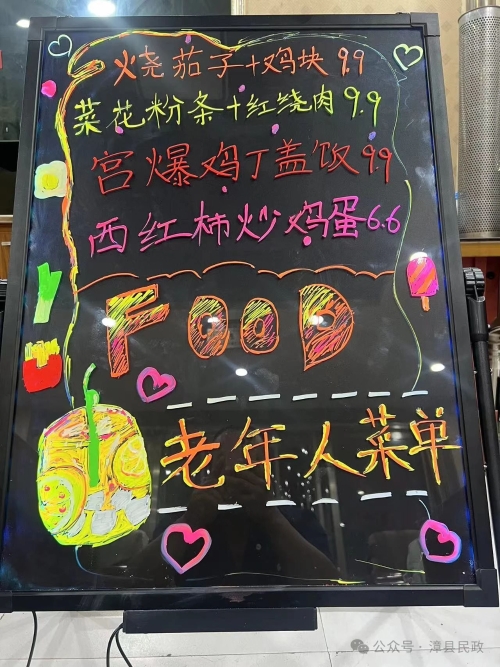 烧茄子+鸡块 9.9
菜花粉条+红烧肉 9.9
宫爆鸡丁盖饭 9.9
西红柿炒鸡蛋 6.6
FOOD
老年人菜单
公众号·漳县民政